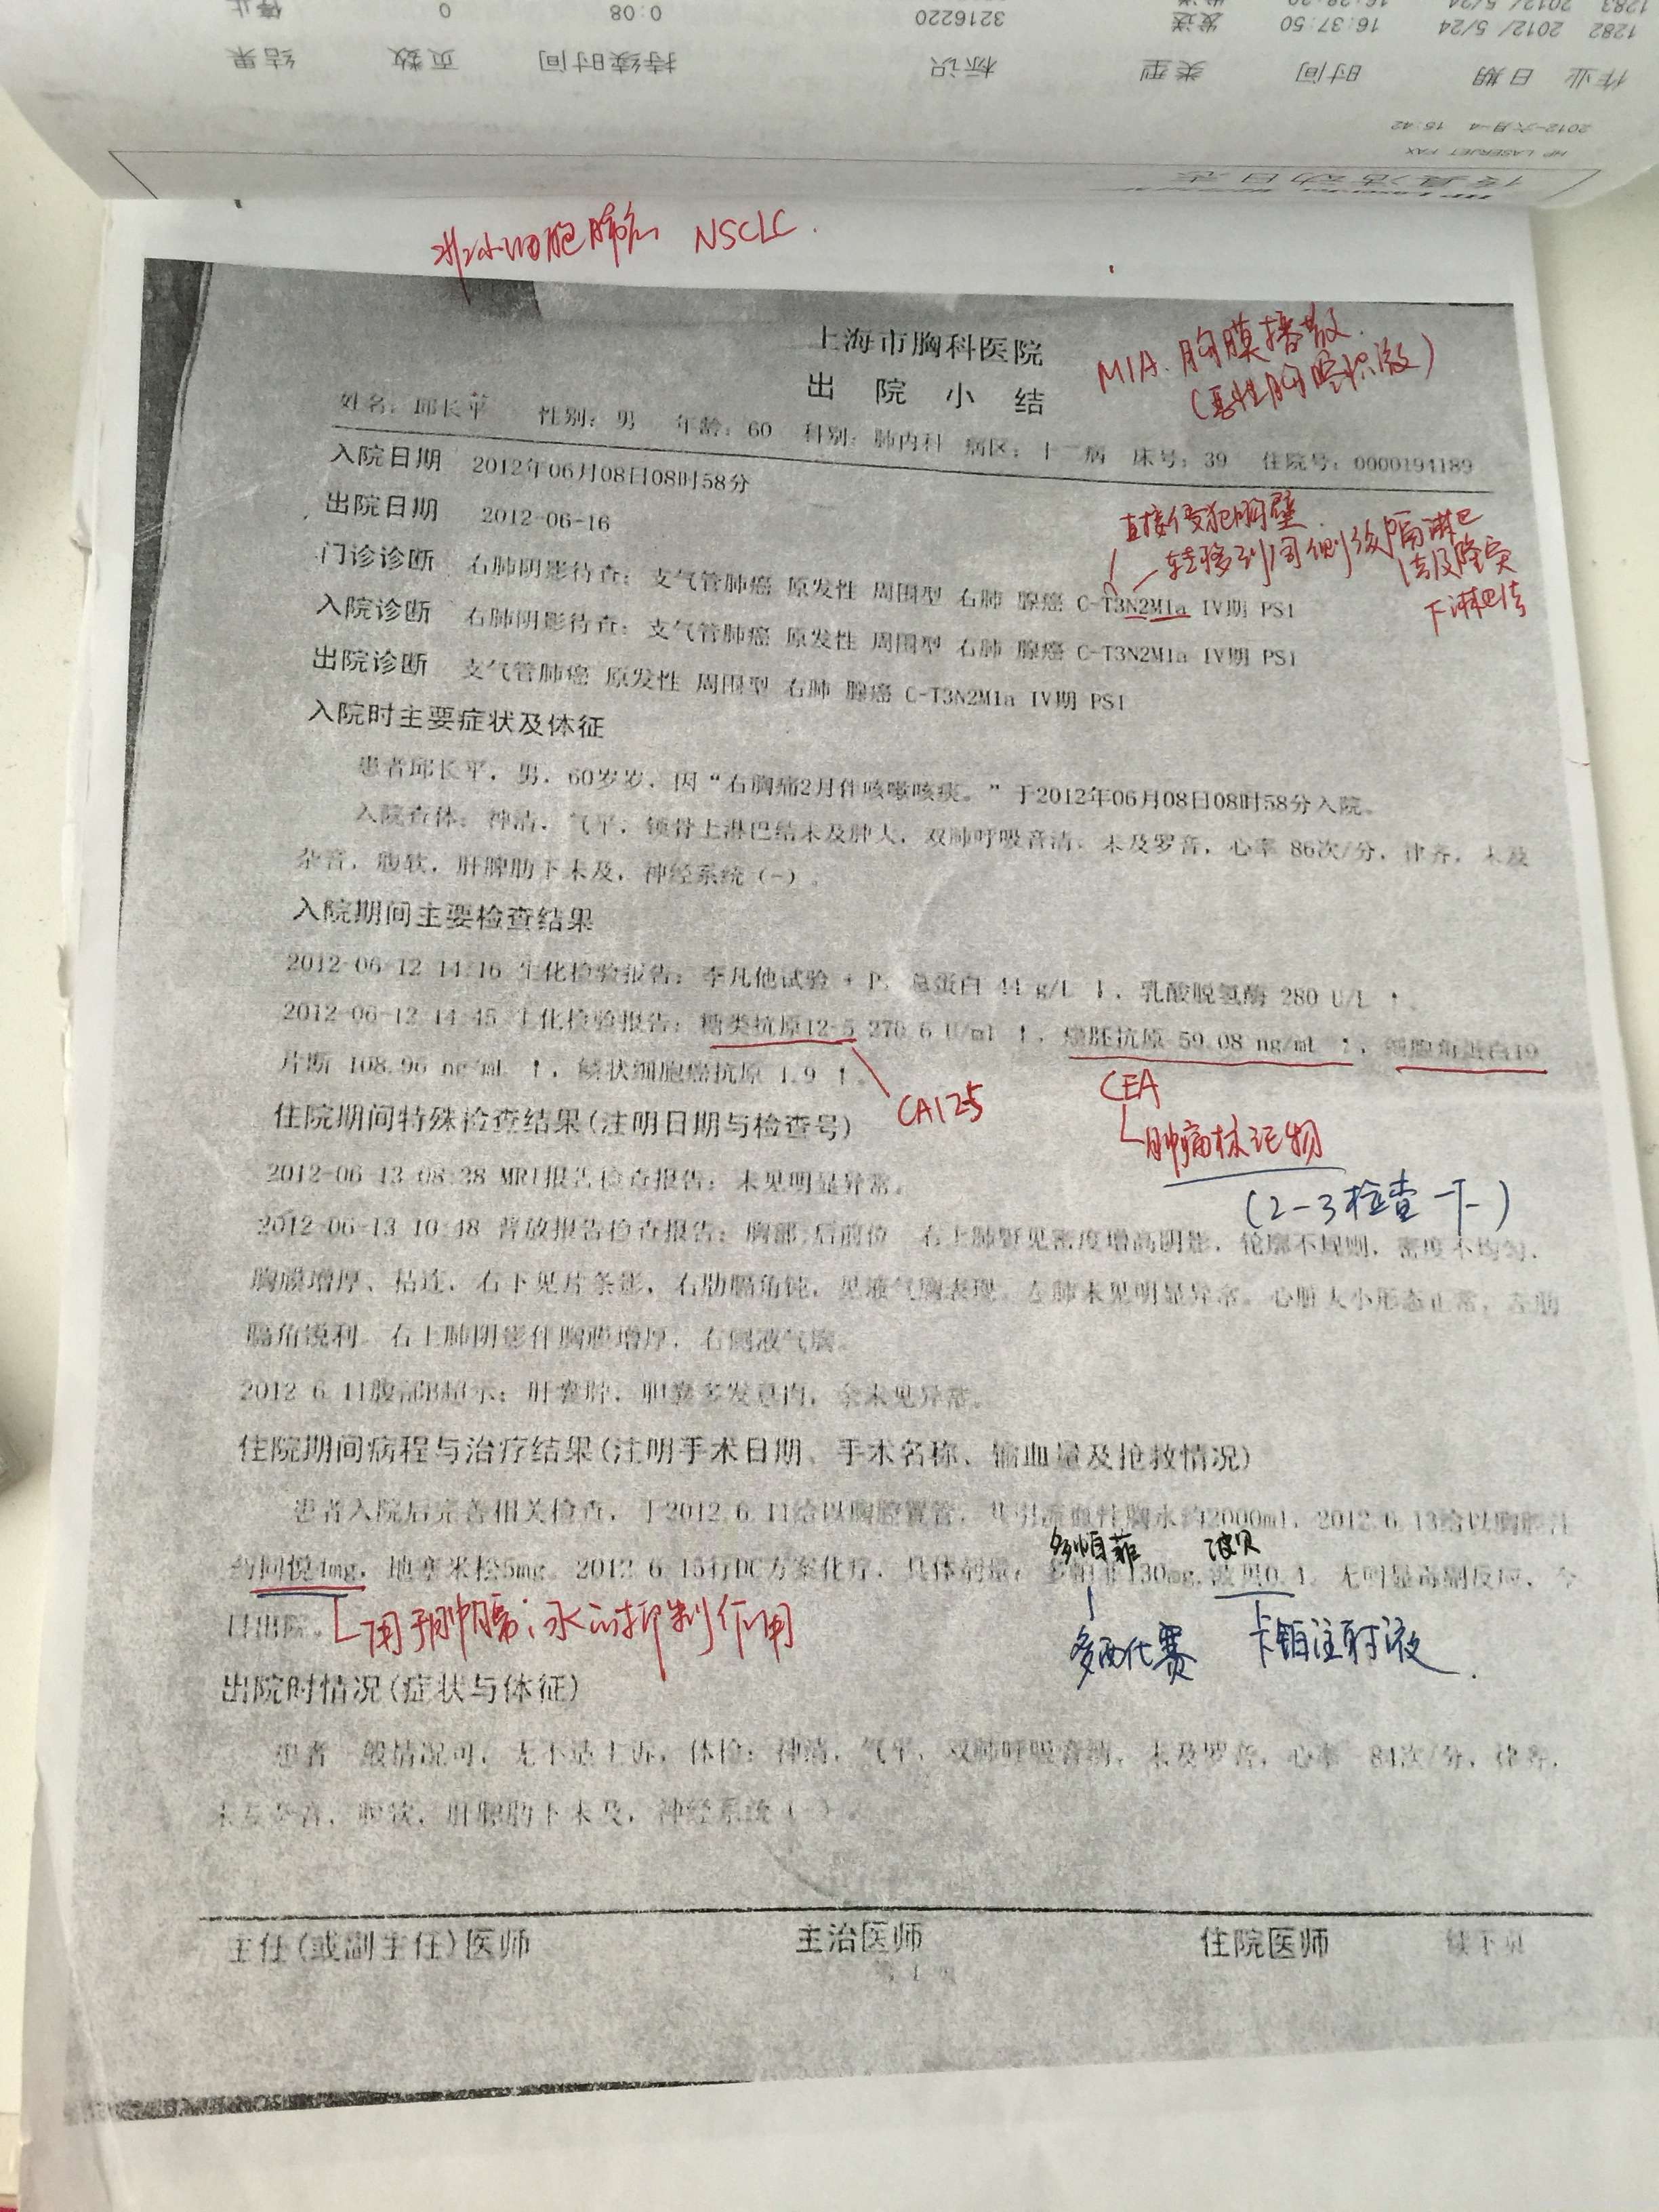 1283 2012/ 5/24 16:38:20 发送
1282 2012/ 5/24 16:37:50 发送 3216220 0:08 0 停止
作业 日期 时间 类型 标识 持续时间 页数 结果
2012-六月-4 15:42
HP LASERJET FAX
传真活动日志
非小细胞肺癌 NSCLC.
上海市胸科医院
出 院 小 结
M1A. 胸膜播散.
(恶性胸腔积液)
姓名: 邱长平 性别: 男 年龄: 60 科别: 肺内科 病区: 十二病 床号: 39 住院号: 0000194189
入院日期 2012年06月08日08时58分
出院日期 2012-06-16
直接侵犯胸壁.
转移到同侧纵膈淋巴
结及隆突
下淋巴结
门诊诊断 右肺阴影待查: 支气管肺癌 原发性 周围型 右肺 腺癌 C-T3N2M1a IV期 PS1
入院诊断 右肺阴影待查: 支气管肺癌 原发性 周围型 右肺 腺癌 C-T3N2M1a IV期 PS1
出院诊断 支气管肺癌 原发性 周围型 右肺 腺癌 C-T3N2M1a IV期 PS1
入院时主要症状及体征
患者邱长平, 男, 60岁岁, 因“右胸痛2月伴咳嗽咳痰。”于2012年06月08日08时58分入院。
入院查体: 神清, 气平, 锁骨上淋巴结未及肿大, 双肺呼吸音清, 未及罗音, 心率 86次/分, 律齐, 未及
杂音, 腹软, 肝脾肋下未及, 神经系统(-)。
入院期间主要检查结果
2012-06-12 14:16 生化检验报告: 李凡他试验 + P, 总蛋白 44 g/L ↓, 乳酸脱氢酶 280 U/L ↑。
2012-06-12 14:45 生化检验报告: 糖类抗原12-5 270.6 U/ml ↑, 癌胚抗原 59.08 ng/mL ↑, 细胞角蛋白19
片断 108.96 ng/mL ↑, 鳞状细胞癌抗原 1.9 ↑。
CA125
CEA
肿瘤标记物
(2-3检查一下)
住院期间特殊检查结果(注明日期与检查号)
2012-06-13 08:38 MRI报告检查报告: 未见明显异常。
2012-06-13 10:48 普放报告检查报告: 胸部 后前位 右上肺野见密度增高阴影, 轮廓不规则, 密度不均匀,
胸膜增厚、粘连, 右下见片条影, 右肋膈角钝, 见液气胸表现。左肺未见明显异常。心脏大小形态正常, 左肋
膈角锐利。右上肺阴影伴胸膜增厚, 右侧液气胸。
2012.6.11腹部B超示: 肝囊肿, 胆囊多发息肉, 余未见异常。
住院期间病程与治疗结果(注明手术日期、手术名称、输血量及抢救情况)
患者入院后完善相关检查, 于2012.6.11给以胸腔置管, 共引流血性胸水约2000ml, 2012.6.13给以胸腔注
多帕菲 波贝
药同悦4mg, 地塞米松5mg。2012.6.15行DC方案化疗, 具体剂量: 多帕菲130mg, 波贝0.4。无明显毒副反应, 今
日出院。
用于肿瘤; 水的抑制作用
多西他赛 卡铂注射液.
出院时情况(症状与体征)
患者一般情况可, 无不适主诉, 体检: 神清, 气平, 双肺呼吸音清, 未及罗音, 心率 84次/分, 律齐,
未及杂音, 腹软, 肝脾肋下未及, 神经系统(-)。
主任(或副主任)医师 主治医师 住院医师 续下页
第 1 页